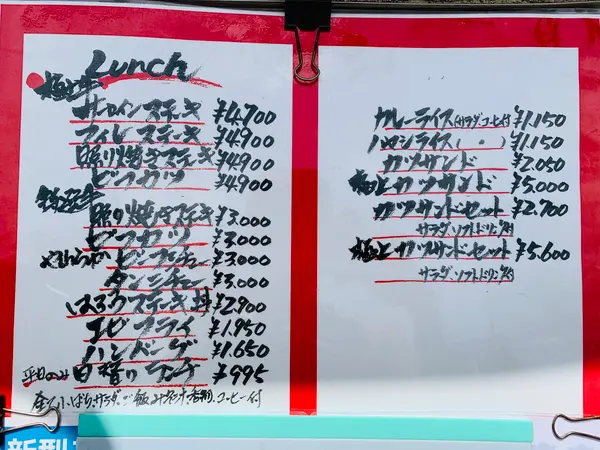 Lunch
極上牛
サーロインステーキ ¥4,700
フィレステーキ ¥4,900
照り焼きステーキ ¥4,900
ビーフカツ ¥4,900
特選牛
照り焼きステーキ ¥3,000
ビーフカツ ¥3,000
やわらか ビーフシチュー ¥3,000
タンシチュー ¥3,000
はみだステーキ丼 ¥2,900
エビフライ ¥1,950
ハンバーグ ¥1,650
平日のみ 日替りランチ ¥995
サラダ、ご飯 コーヒー付
カレーライス(サラダコーヒー付) ¥1,150
ハヤシライス( 〃 ) ¥1,150
カツサンド ¥2,050
極上カツサンド ¥5,000
カツサンドセット ¥2,700
サラダ、ソフトドリンク付
極上カツサンドセット ¥5,600
サラダ、ソフトドリンク付
新型